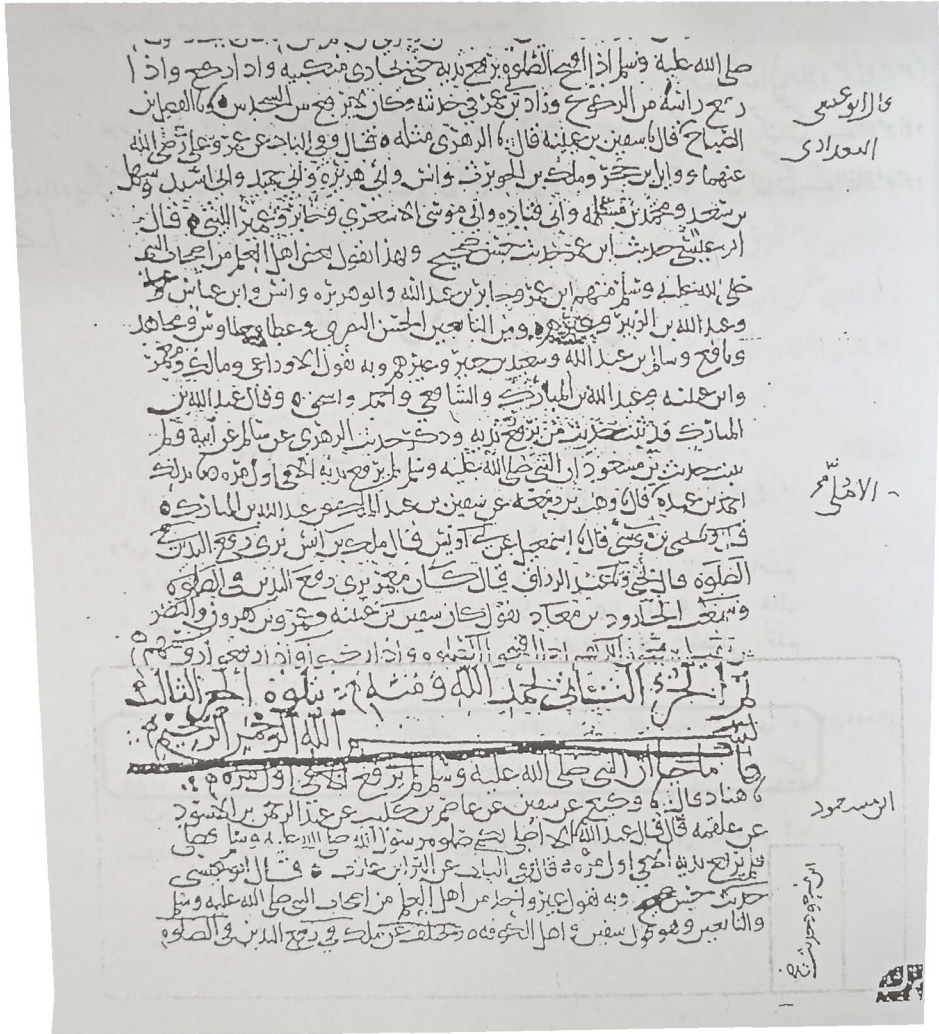 صلى الله عليه وسلم اذا افتتح الصلوة يرفع يديه حتى يحاذي منكبيه واذا ركع واذا
رفع راسه من الركوع وزاد بن عمر في حديثه وكان لا يرفع بين السجدتين الفضل بن
الصباح قال سفين بن عيينة قال الزهري مثله قال وفي الباب عن عمر وعلي رضي الله
عنهما ووايل بن حجر وملك بن الحويرث وانس وابي هريرة وابي حميد وابي اسيد وسهل
بن سعد ومحمد بن مسلمه وابي قتاده وابي موسى الاشعري وجابر وعمير الليثي قال
ابو عيسى حديث ابن عمر حديث حسن صحيح وبهذا يقول بعض اهل العلم من اصحاب النبي
صلى الله عليه وسلم منهم ابن عمر وجابر بن عبد الله وابو هريره وانس وابن عباس
وعبد الله بن الزبير وغيرهم ومن التابعين الحسن البصري وعطا وطاوس ومجاهد
ونافع وسالم بن عبد الله وسعيد بن جبير وغيرهم وبه يقول الاوزاعي ومالك ومعمر
وابن عيينه وعبد الله بن المبارك والشافعي واحمد واسحق وقال عبد الله بن
المبارك قد ثبت حديث من يرفع يديه وذكر حديث الزهري عن سالم عن ابيه ولم
يثبت حديث بن مسعود ان النبي صلى الله عليه وسلم لم يرفع يديه الا في اول مره بذلك
احمد بن عبده قال وهب بن زمعه عن سفين بن عبد الملك عن عبد الله بن المبارك
يحيى بن موسى قال اسمعيل بن ابي اويس قال ملك بن انس يرى رفع اليدين في
الصلوة قال يحيى عبد الرزاق قال كان معمر يرى رفع اليدين في الصلوه
وسمعت الجارود بن معاذ يقول كان سفين بن عيينه وعمر بن هرون والنضر
بن شميل اذا افتتحوا الصلوه واذا ركعوا واذا رفعوا روسهم
تم الجزء الثاني بحمد الله ومنه يتلوه الجزء الثالث
بسم الله الرحمن الرحيم
باب ما جا ان النبي صلى الله عليه وسلم لم يرفع الا في اول مره
هناد قال وكيع عن سفين عن عاصم بن كليب عن عبد الرحمن بن الاسود
عن علقمه قال قال عبد الله الا اصلي بكم صلوه رسول الله صلى الله عليه وسلم فصلى
فلم يرفع يديه الا في اول مره قال وفي الباب عن البرا بن عازب قال ابو عيسى
حديث حسن وبه يقول غير واحد من اهل العلم من اصحاب النبي صلى الله عليه وسلم
والتابعين وهو قول سفين واهل الكوفه ومختلف عن ملك في رفع اليدين في الصلوه
قال ابو عيسى
البغدادي
الاملي
ابن مسعود